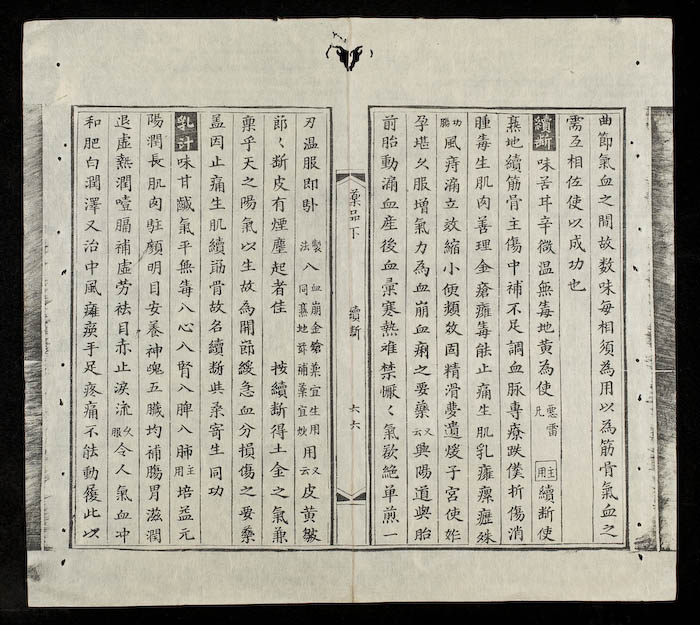 曲節氣血之間故数味每相須為用以為筋骨氣血之
需互相佐使以成功也
續断 味苦甘辛微溫無毒地黃為使 惡雷丸 主用 續断使
熟地續筋骨主傷中補不足調血脉専療跌僕折傷消
腫毒生肌肉善理金瘡癰毒能止痛生肌乳癰瘰癧殊
功 風痹漏立效縮小便頻效固精滑夢遺煖子宮使姙
孕堪久服增氣力為血崩血痢之要藥 又云 興陽道與胎
前胎動漏血產後血暈寒熱难禁懨〻氣欲絶单煎一
藥品下 續断 六六
刃温服即卧 製法 入血崩金鎗藥宜生用同熟地諸補藥宜炒 用 又云 皮黃皺
節〻断皮有煙塵起者佳 按續断得土金之氣兼
稟乎天之陽氣以生故為開節緩急血分損傷之要藥
盖因止痛生肌續筋骨故名續断與桑寄生同功
乳汁 味甘鹹氣平無毒入心入腎入脾入肺 主用 培益元
陽潤長肌肉駐顏明目安養神魂五臟均補腸胃滋潤
退虛熱潤噎膈補虛劳祛目赤止淚流 久服 令人氣血冲
和肥白潤澤又治中風癱瘓手足疼痛不能動履此以